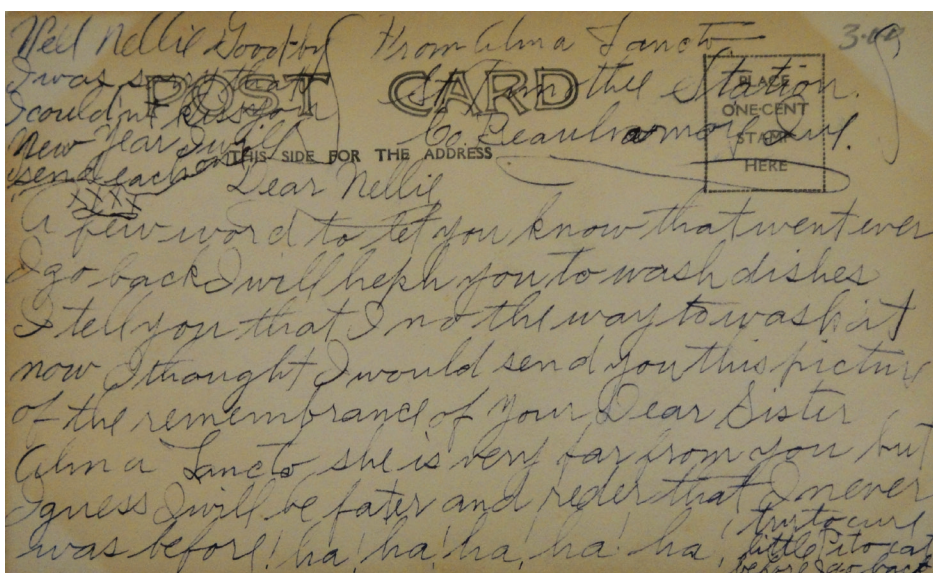 Well Nellie Goodby
I was sorry that
I couldn't kiss you
New Year I will
send each one
XXXX
From Alma Lancto
St. Timothee Station.
Co. Beauharnois
3.00
POST CARD
THIS SIDE FOR THE ADDRESS
PLACE
ONE-CENT
STAMP
HERE
Dear Nellie
A few word to let you know that went ever
I go back I will heph you to wash dishes
I tell you that I no the way to wash it
now I thought I would send you this picture
of the remembrance of your Dear Sister
Alma Lancto she is very far from you but
I guess I will be fater and reder that I never
was before! ha! ha! ha! ha! ha! ha!
try to cure
little to eat
before I go back